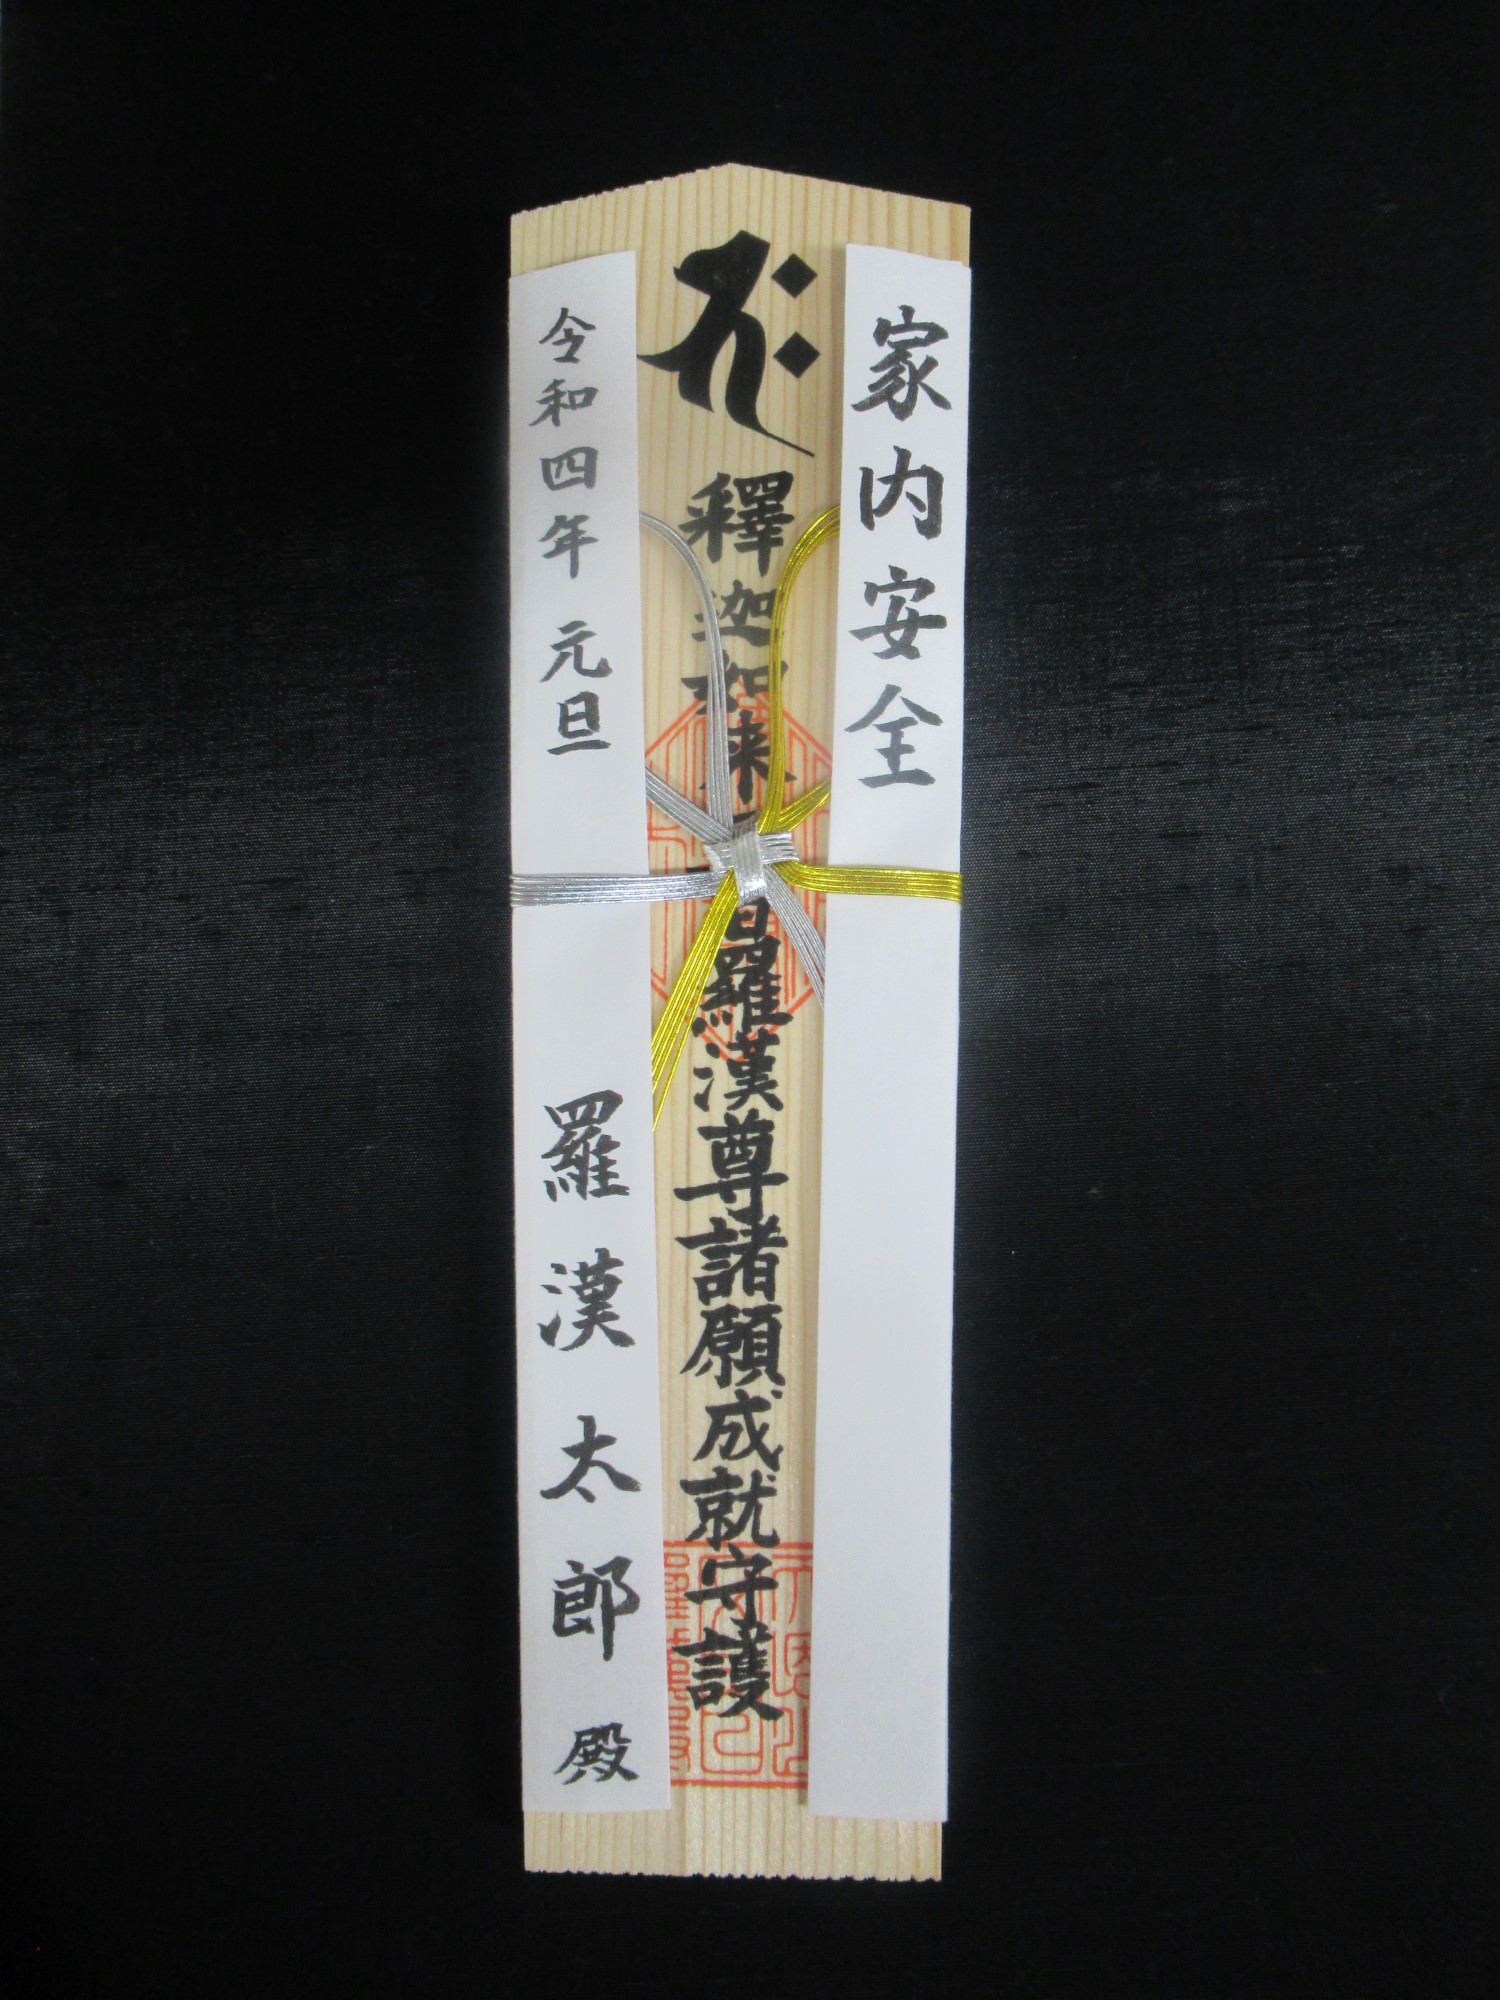 家内安全
釋迦如来五百羅漢尊諸願成就守護
令和四年 元旦
羅漢太郎 殿